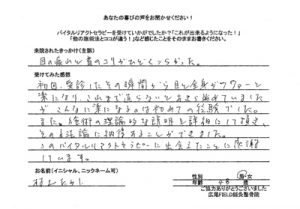 あなたの喜びの声をお聞かせください！
バイタルリアクトセラピーを受けていかがでしたか？「これが出来るようになった！」
「他の施術法とココが違う！」など感じたことをそのままお書きください。
来院されたきっかけ（主訴）
目の疲れと首のコリがひどくつらかった。
受けてみた感想
初回、受診したその瞬間から目と全身がフワァーと
楽になり、これまで直らないとあきらめていました
が、こんなに楽になるのは初めての経験でし
た。施術の理論的な説明も詳細にして頂き、
その理論に納得することができました。
このバイタルリアクトセラピーに出会えたことに感謝
しています。
お名前（イニシャル、ニックネーム可）
性別 男・女
年齢 48 歳
ご協力ありがとうございました
広尾FIELD鍼灸整骨院